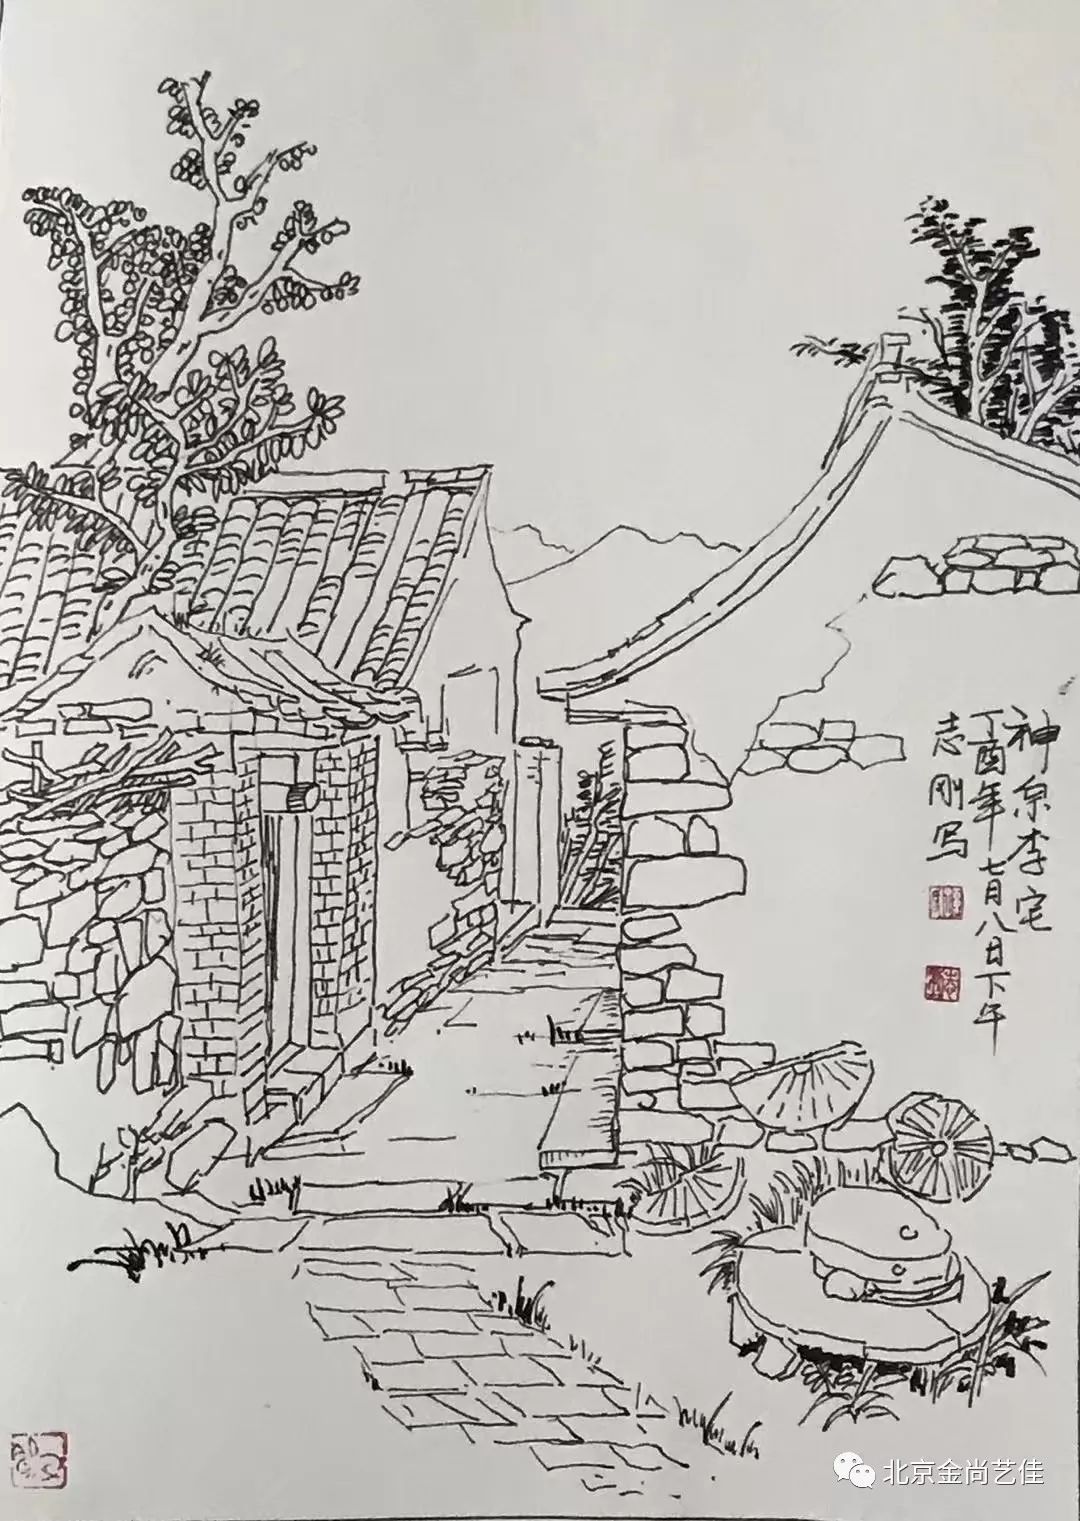 神泉李宅
丁酉年七月八日下午
志刚写
北京金尚艺佳